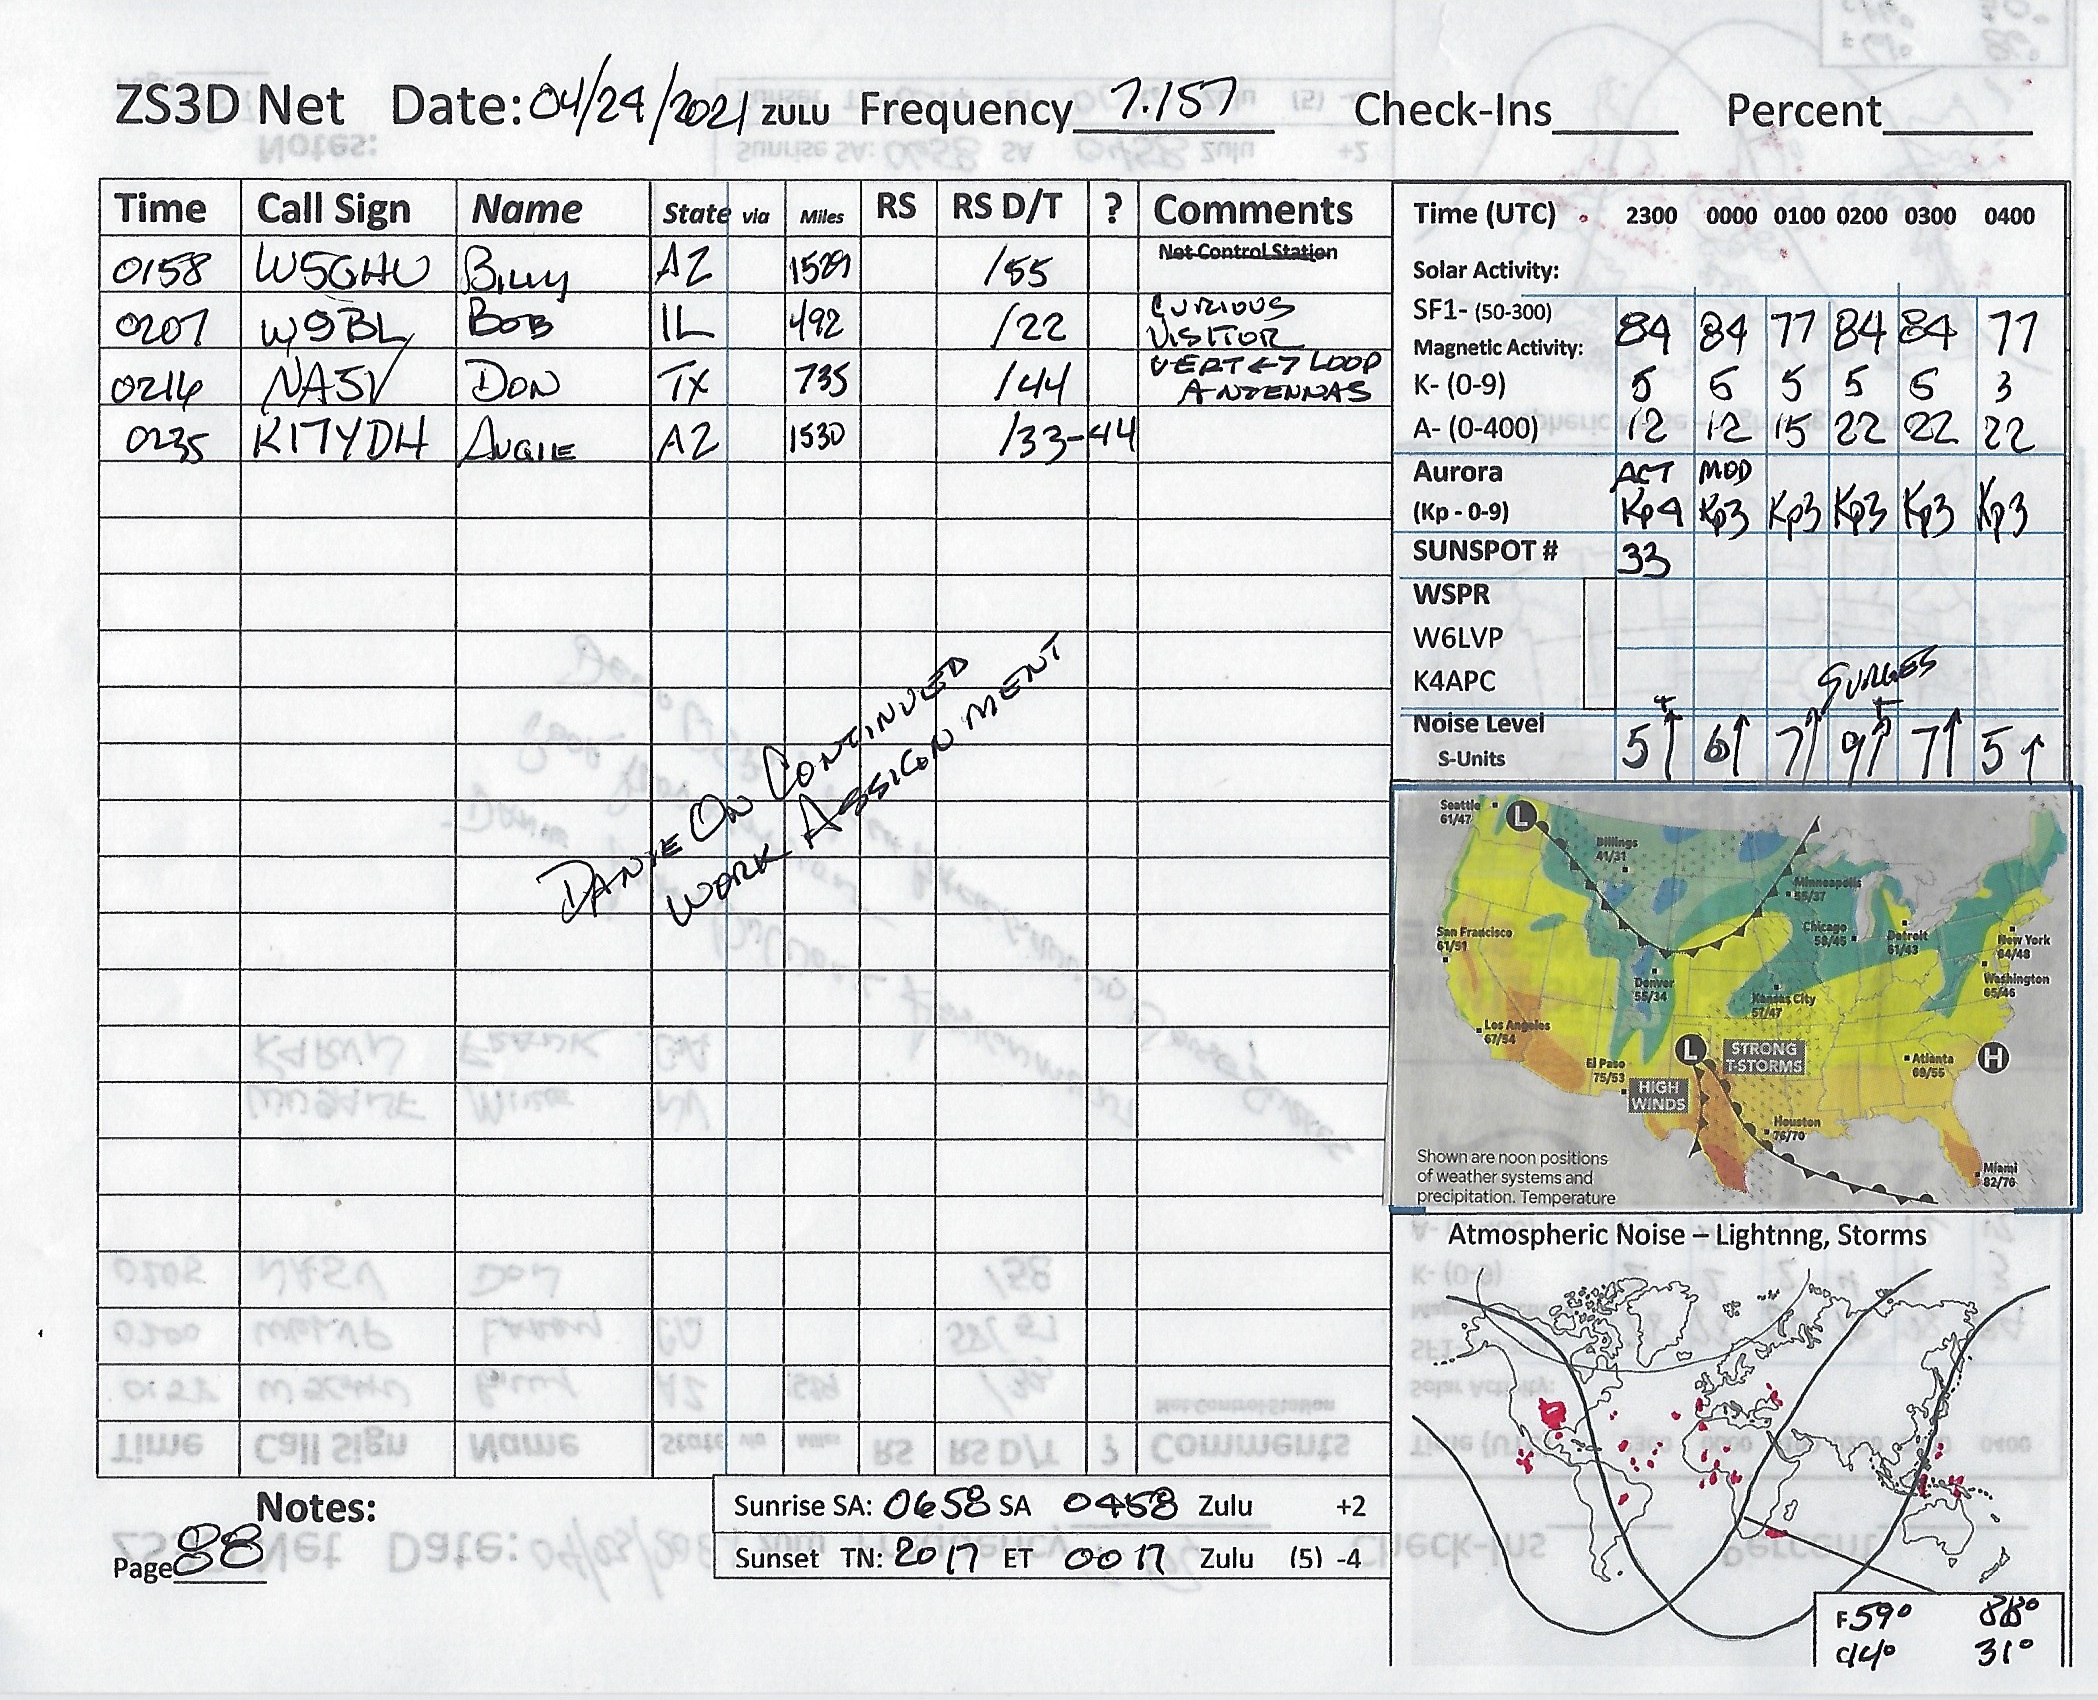 ZS3D Net Date: 04/24/2021 ZULU Frequency 7.157 Check-Ins______ Percent______
Time Call Sign Name State via Miles RS RS D/T ? Comments
0158 W5GHU Billy AZ 1529 /55 Net Control Station
0207 W9BL BOB IL 492 /22 CURIOUS
VISITOR
0214 NA5V DON TX 735 /44 VERT ←→ LOOP
ANTENNAS
0235 KI7YDH AUGIE AZ 1530 /33-44
DANIE ON CONTINUED
WORK ASSIGNMENT
Time (UTC) 2300 0000 0100 0200 0300 0400
Solar Activity:
SF1- (50-300) 84 84 77 84 84 77
Magnetic Activity:
K- (0-9) 5 5 5 5 5 3
A- (0-400) 12 12 15 22 22 22
Aurora ACT MOD
(Kp - 0-9) Kp4 Kp3 Kp3 Kp3 Kp3 Kp3
SUNSPOT # 33
WSPR
W6LVP
K4APC
SURGES
Noise Level
S-Units 5↑ 6↑ 7↑ 9↑ 7↑ 5↑
Seattle
61/47
L
Billings
41/31
Minneapolis
55/37
San Francisco
61/51
Chicago
58/45
Detroit
61/43
New York
64/48
Denver
55/34
Kansas City
57/47
Washington
65/46
Los Angeles
67/54
L
STRONG
T-STORMS
Atlanta
69/55
H
El Paso
75/53
HIGH
WINDS
Houston
76/70
Miami
82/76
Shown are noon positions
of weather systems and
precipitation. Temperature
Atmospheric Noise – Lightnng, Storms
F59° 88°
C14° 31°
Notes:
Page 88
Sunrise SA: 0658 SA 0458 Zulu +2
Sunset TN: 2017 ET 0017 Zulu (5) -4